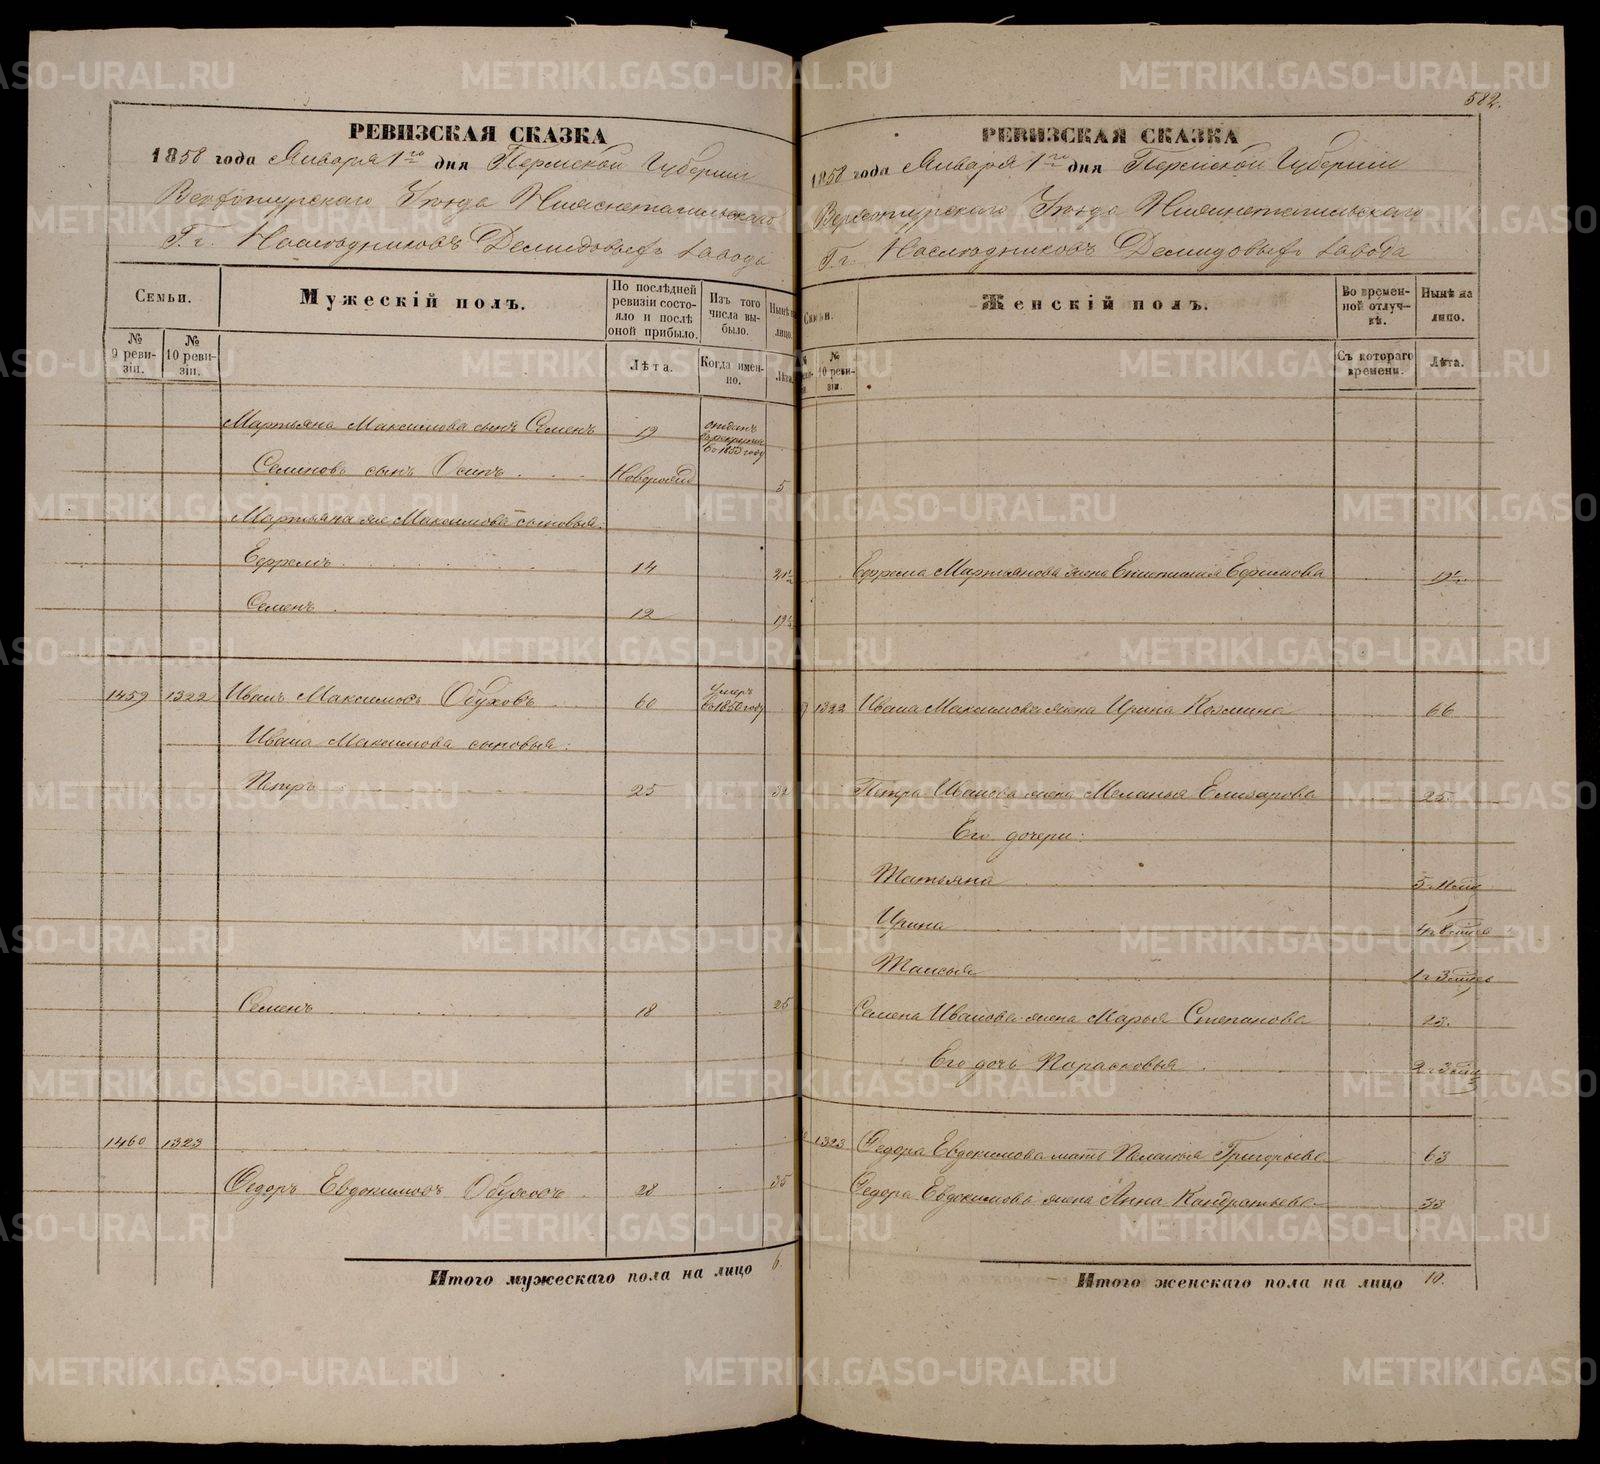 РЕВИЗСКАЯ СКАЗКА
1858 года Января 1го дня Пермской Губернии
Верхотурскаго Уѣзда Нижнетагильскаго
Г. г. Наслѣдниковъ Демидовыхъ завода
Семьи.
№ 9 ревизіи.
№ 10 ревизіи.
Мужескій полъ.
По послѣдней ревизіи состояло и послѣ оной прибыло.
Лѣта.
Изъ того числа выбыло.
Когда именно.
Нынѣ на лицо.
Лѣта.
Мартьяна Максимова сынъ Семенъ 19 отданъ въ рекруты въ 1853 году
Семеновъ сынъ Осипъ Новорожд 5
Мартьяна же Максимова сыновья
Ефремъ 14 21½
Семенъ 12 19½
1459 1322 Иванъ Максимовъ Обуховъ 60 умеръ въ 1850 году
Ивана Максимова сыновья:
Петръ 25 32
Семенъ 18 25
1460 1323
Федоръ Евдокимовъ Обуховъ 28 35
Итого мужескаго пола на лицо 6.
582.
РЕВИЗСКАЯ СКАЗКА
1858 года Января 1го дня Пермской Губерніи
Верхотурскаго Уѣзда Нижнетагильскаго
Г. г. Наслѣдниковъ Демидовыхъ завода
Семьи.
№ 10 ревизіи.
Женскій полъ.
Во временной отлучкѣ.
Съ котораго времени.
Нынѣ на лицо.
Лѣта.
Ефрема Мартьянова жена Епистимія Ефимова 19½
1322 Ивана Максимова жена Ирина Козмина 66
Петра Иванова жена Меланья Елизарова 25.
Его дочери:
Татьяна 5 лѣтъ
Ирина 4 г 8 мцов
Таисья 1 г 3 мцов
Семена Иванова жена Марья Степанова 23.
Его дочь Парасковья 2 г 3 мца
1323 Федора Евдокимова мать Пелагья Григорьева 63
Федора Евдокимова жена Анна Кандратьева 33
Итого женскаго пола на лицо 10.
METRIKI.GASO-URAL.RU